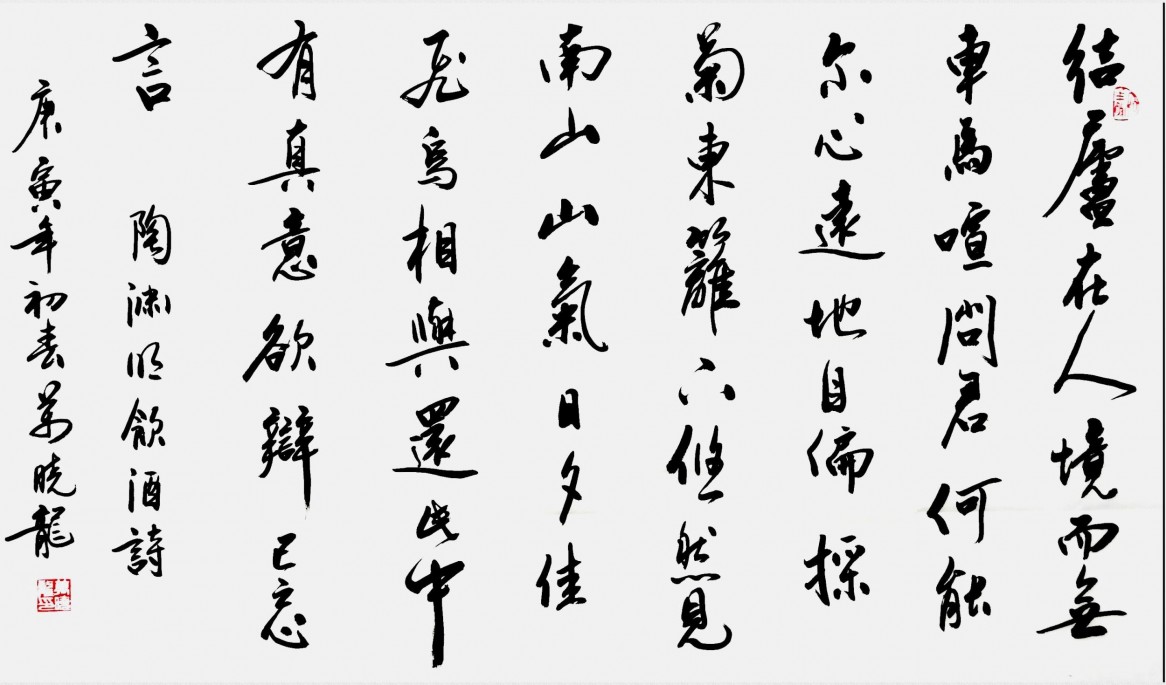 結廬在人境而無
車馬喧問君何能
尔心遠地自偏採
菊東籬下悠然見
南山山氣日夕佳
飛鳥相與還此中
有真意欲辯已忘
言 陶渊明飲酒詩
庚寅年初春萬晓龍